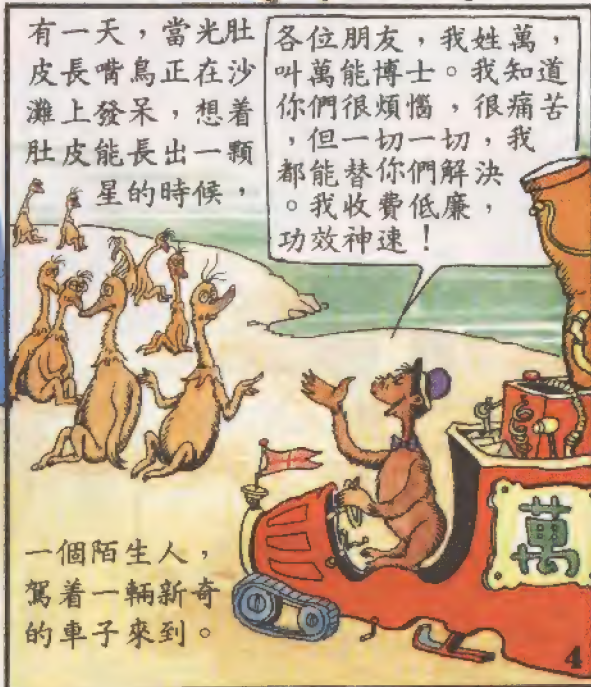 有一天，當光肚
皮長嘴鳥正在沙
灘上發呆，想着
肚皮能長出一顆
星的時候，
各位朋友，我姓萬，
叫萬能博士。我知道
你們很煩惱，很痛苦
，但一切一切，我
都能替你們解決
。我收費低廉，
功效神速！
一個陌生人，
駕着一輛新奇
的車子來到。
萬
4